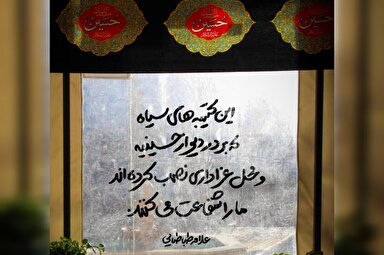 حسین
حسین
حسین
این کتیبه های سیاه
که بر در و دیوار حسینیه
و محل عزاداری نصب کرده اند
ما را شفاعت می کنند.
علامه طباطبایی